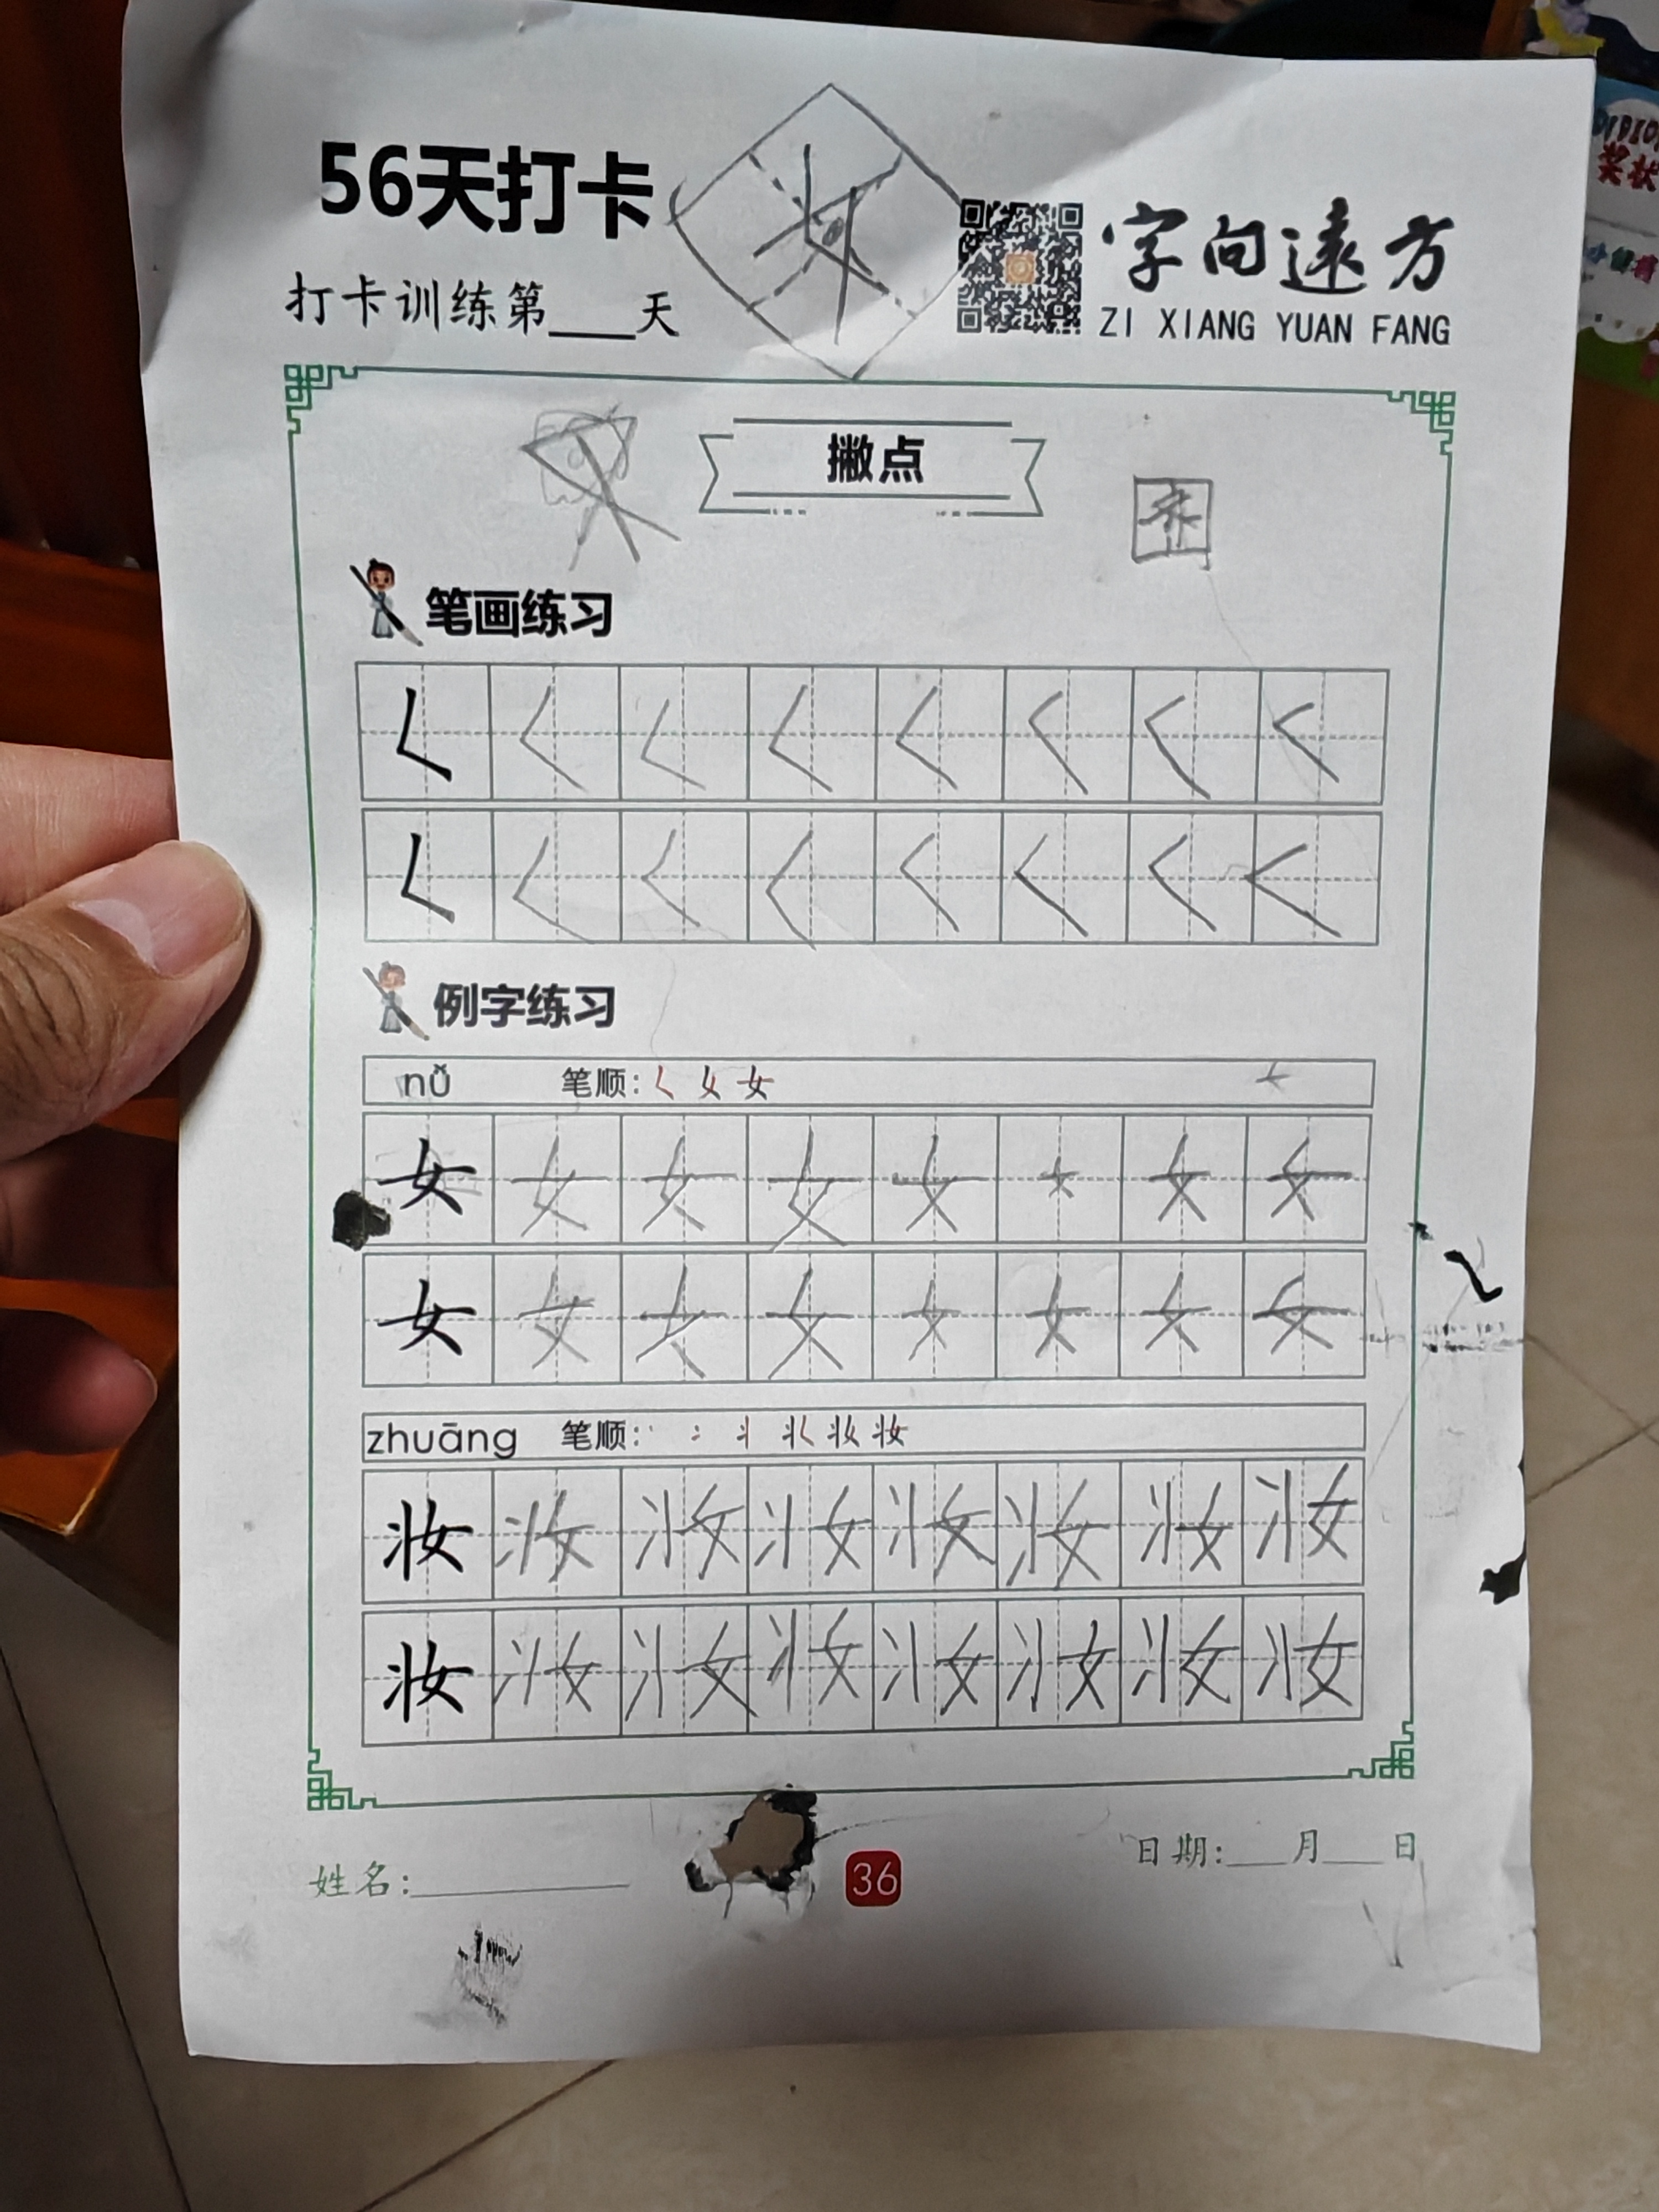 56天打卡
字向遠方
打卡训练第___天
ZI XIANG YUAN FANG
撇点
笔画练习
例字练习
nǚ 笔顺: 女
女 女 女 女 女 女 女 女
女 女 女 女 女 女 女 女
zhuāng 笔顺: 妆
妆 妆 妆 妆 妆 妆 妆 妆
妆 妆 妆 妆 妆 妆 妆 妆
姓名:
36
日期:___月___日
奖状